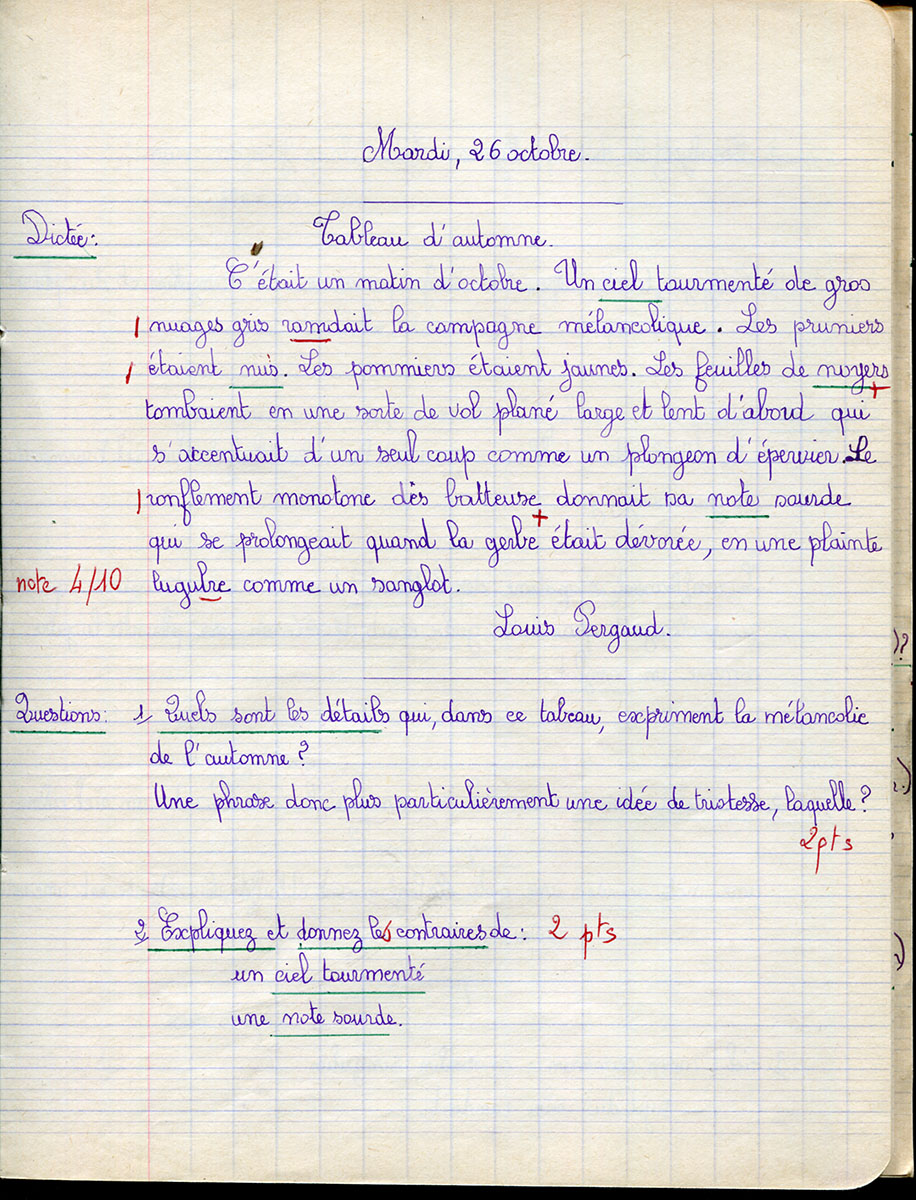 Mardi, 26 octobre.
Dictée: Tableau d'automne.
C'était un matin d'octobre. Un ciel tourmenté de gros
nuages gris ramdait la campagne mélancolique. Les pruniers
étaient nuis. Les pommiers étaient jaunes. Les feuilles de noyers
tombaient en une sorte de vol plané large et lent d'abord qui +
s'accentuait d'un seul coup comme un plongeon d'épervier. Le
ronflement monotone dès batteuse donnait sa note sourde
qui se prolongeait quand la gerbe + était dévorée, en une plainte
note 4/10 lugubre comme un sanglot.
Louis Pergaud.
Questions: 1 Quels sont les détails qui, dans ce tabeau, expriment la mélancolie
de l'automne?
Une phrase donc plus particulièrement une idée de tristesse, laquelle?
2pts
2 Expliquez et donnez les contraires de: 2 pts
un ciel tourmenté
une note sourde.